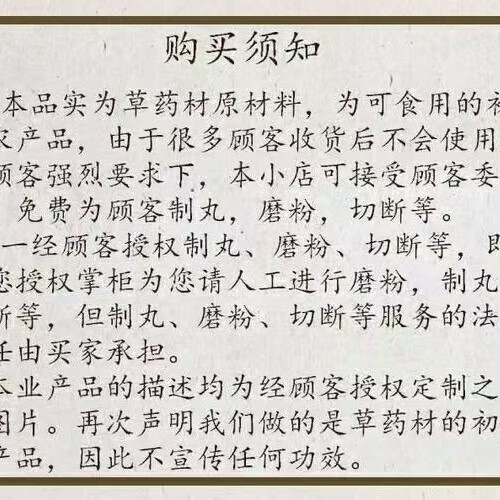 购买须知
本品实为草药材原材料，为可食用的初
农产品，由于很多顾客收货后不会使用
顾客强烈要求下，本小店可接受顾客委
，免费为顾客制丸，磨粉，切断等。
一经顾客授权制丸、磨粉、切断等，即
您授权掌柜为您请人工进行磨粉，制丸
断等，但制丸、磨粉、切断等服务的法
任由买家承担。
本业产品的描述均为经顾客授权定制之
图片。再次声明我们做的是草药材的初
产品，因此不宣传任何功效。